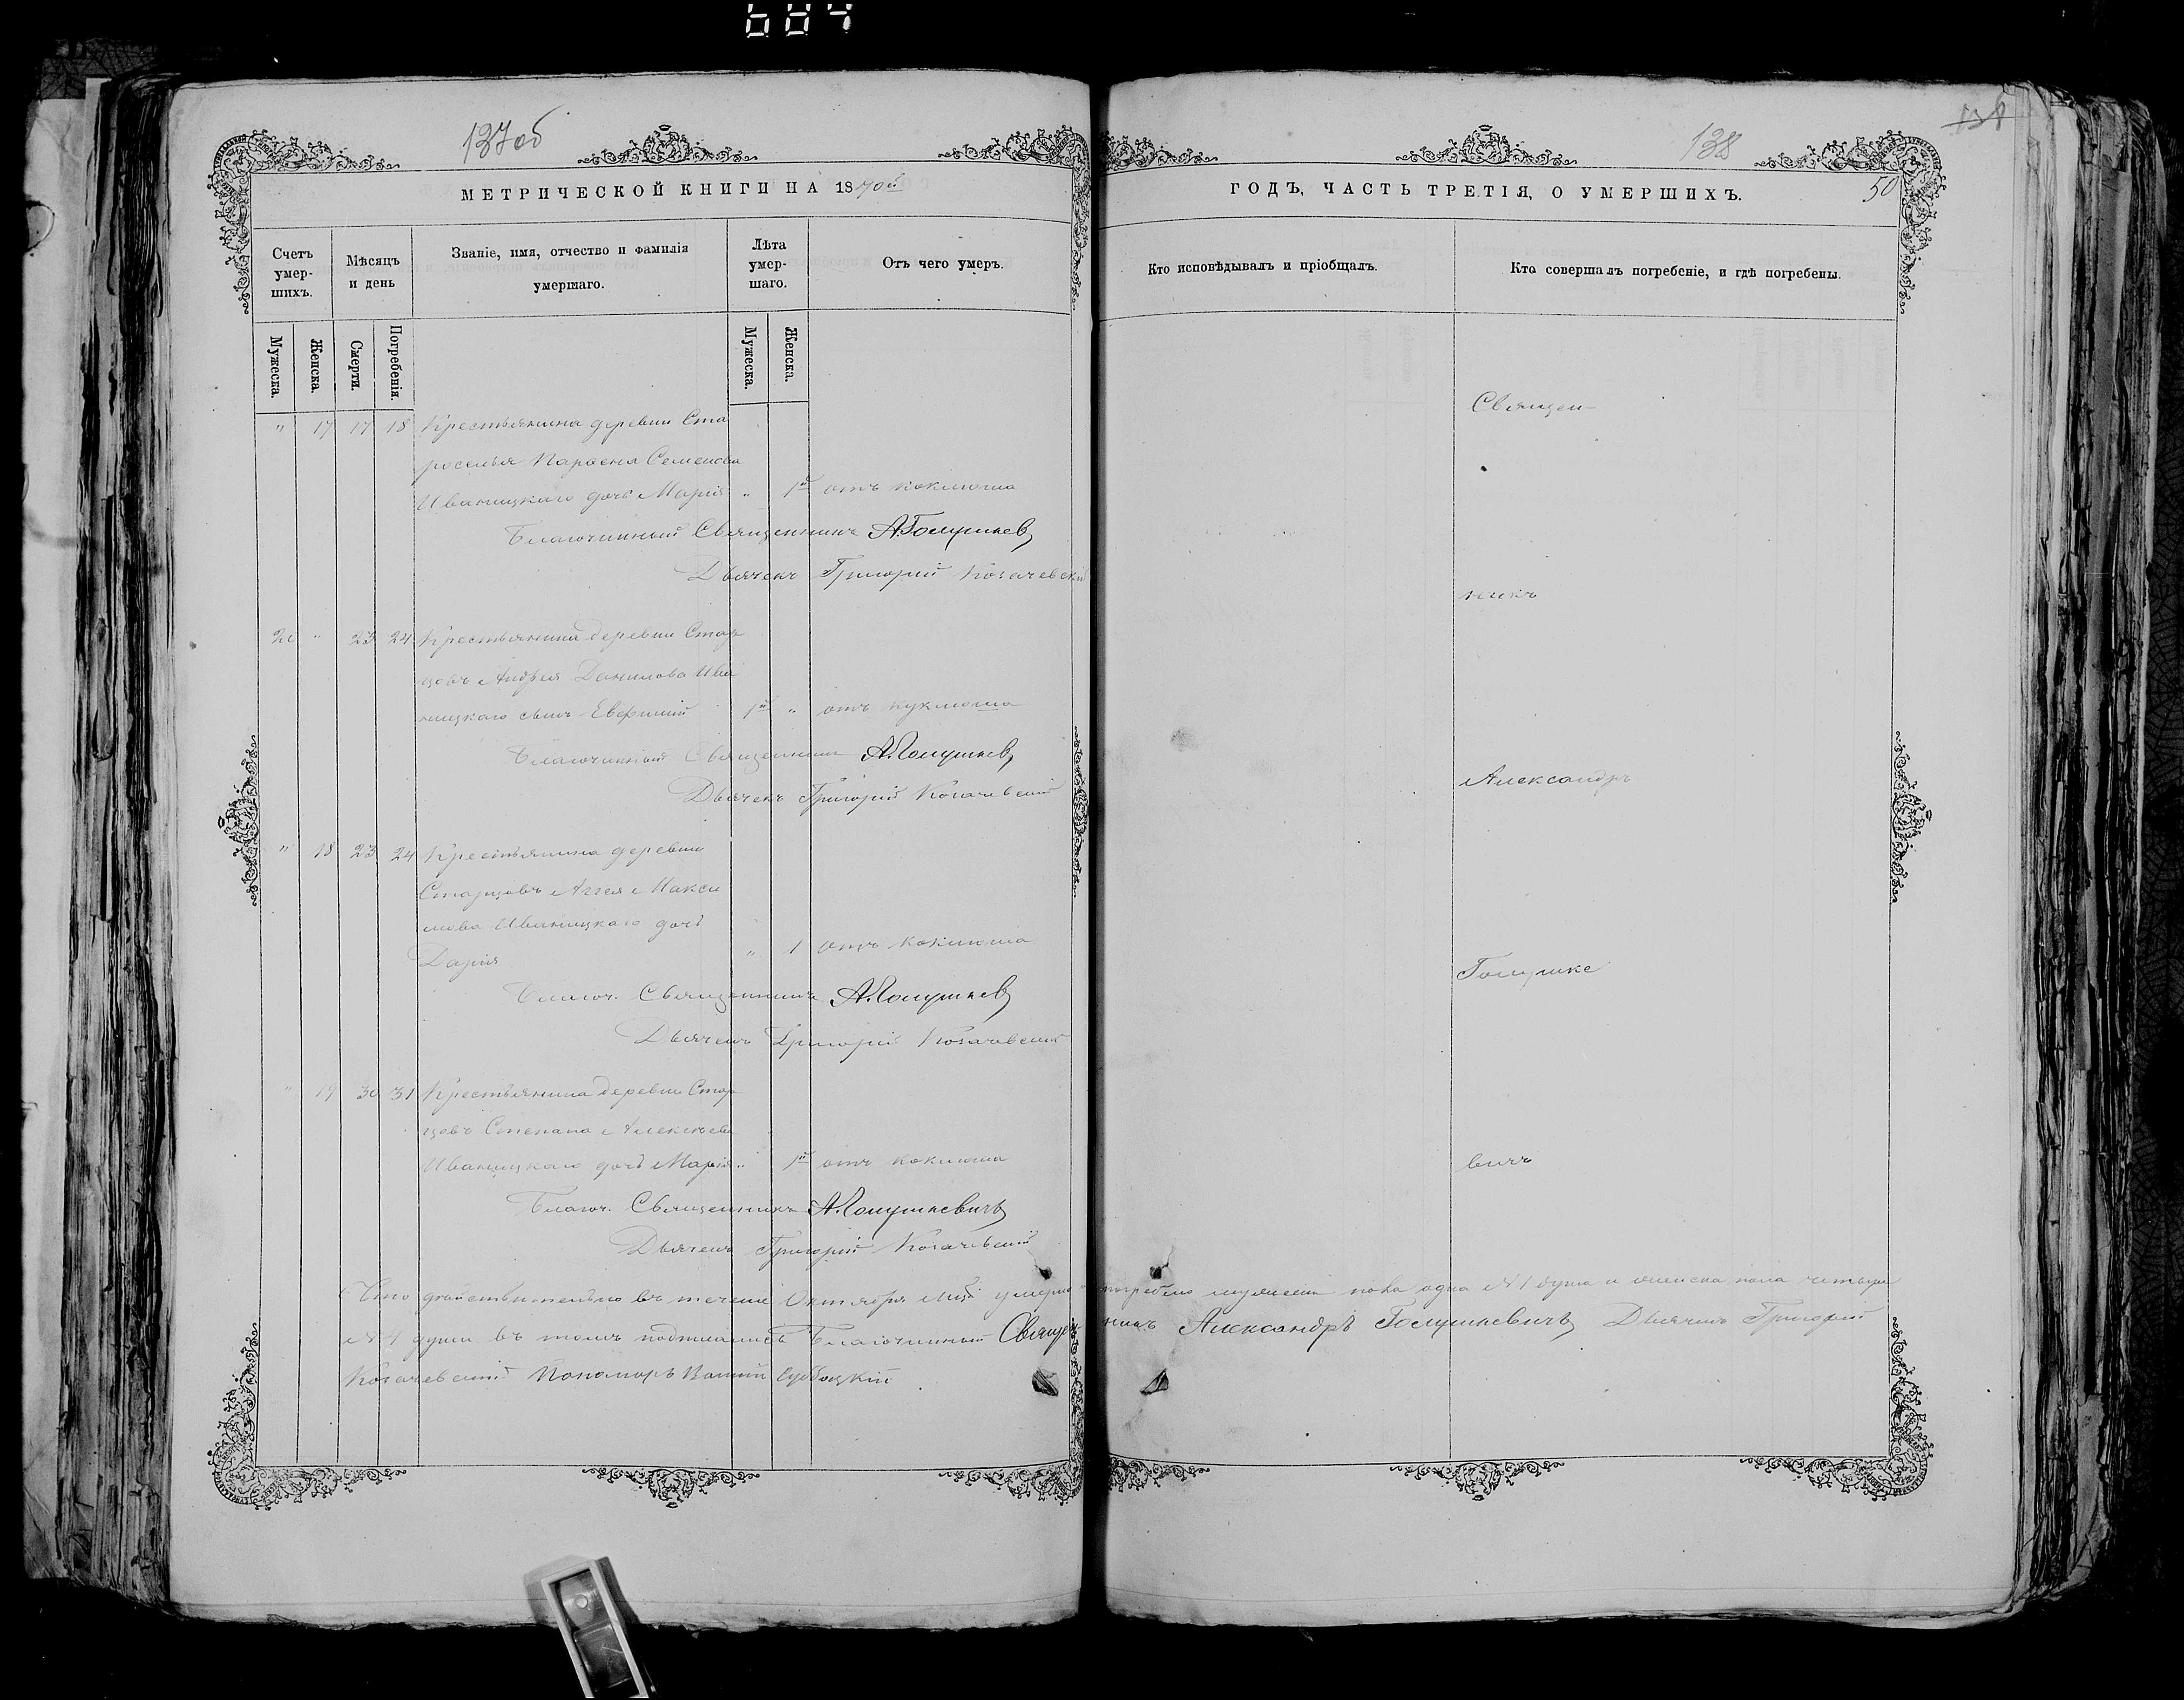 684
137об
МЕТРИЧЕСКОЙ КНИГИ НА 1870й
Счетъ умер-шихъ.
Мѣсяцъ и день
Званіе, имя, отчество и фамилія умершаго.
Лѣта умер-шаго.
Отъ чего умеръ.
Мужеска.
Женска.
Смерти.
Погребенія.
Мужеска.
Женска.
" 17 17 18 Крестьянина деревни Ста
роселья Парѳена Семенова
Иваницкаго дочь Марія " 1 отъ коклюша
Благочинный Священникъ А. Голушкев
Дьячекъ Григорій Козачевскій
20 " 23 24 Крестьянина деревни Стар
цовъ Андрея Данилова Ива
ницкаго сынъ Евфимій 1 " отъ куклюша
Благочинный Священникъ А. Голушкев
Дьячекъ Григорій Козачевскій
" 18 23 24 Крестьянина деревни
Старцовъ Аггея Макси
мова Иваницкаго дочь
Дарія " 1 отъ коклюша
Благоч. Священникъ А. Голушкев
Дьячекъ Григорій Козачевскій
" 19 30 31 Крестьянина деревни Стар
цовъ Степана Алексѣева
Иваницкаго дочь Марія " 1 отъ коклюша
Благоч. Священникъ А. Голушкевичъ
Дьячекъ Григорій Козачевскій
Что дѣйствительно въ теченіе Октября мца умерло и погребено мужеска пола одна №1 душа и женска пола четыре
№ 4 души въ томъ подписались Благочинный Священникъ Александръ Голушкевичъ Дьячекъ Григорій
Козачевскій Пономарь
138
50
ГОДЪ, ЧАСТЬ ТРЕТІЯ, О УМЕРШИХЪ.
Кто исповѣдывалъ и пріобщалъ.
Кто совершалъ погребеніе, и гдѣ погребены.
Священ-
никъ
Александръ
Голушке
вичъ